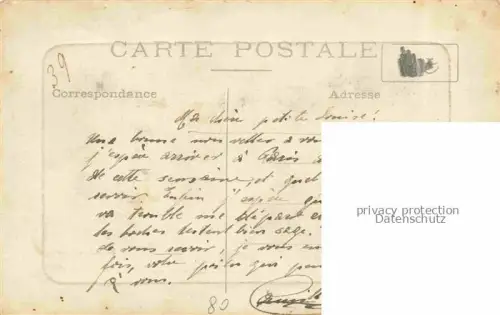 39
CARTE POSTALE
Correspondance
Adresse
Ma chère petite Louise!
Une bonne nouvelle a vou
j'espère arriver à Paris
de cette semaine, et quel
revoir. Enfin j'espère qu
va
les boches restent bien sage.
de vous revoir, je vous
fois, votre poilu qui pen
à vous.
80
privacy protection
Datenschutz